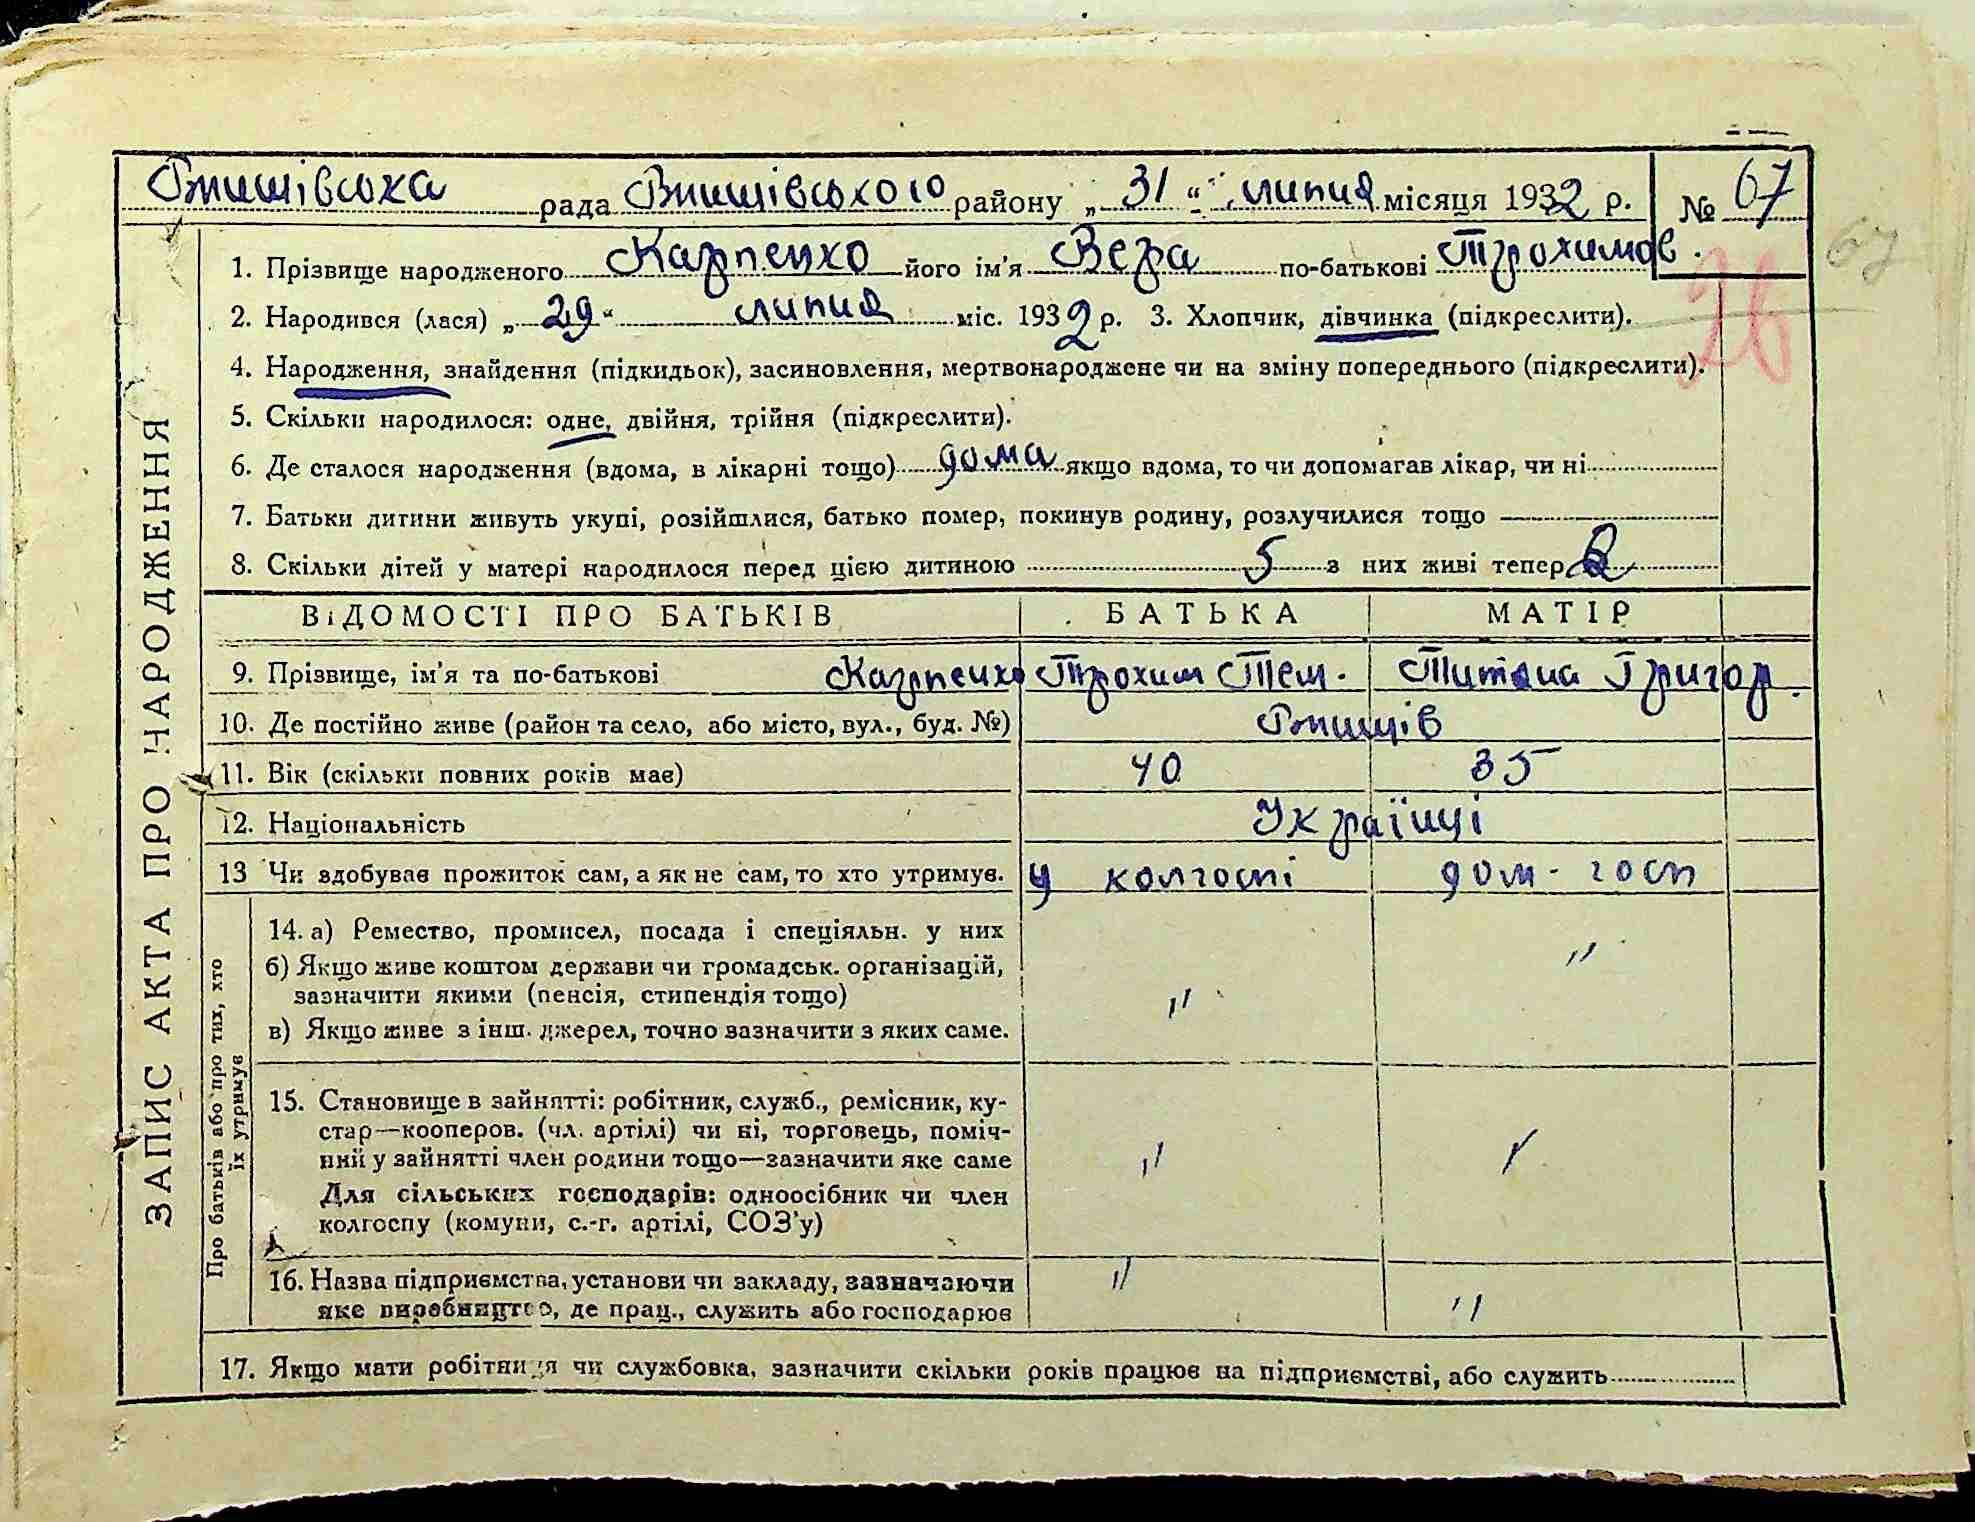 Ржищівська рада Ржищівського району „31“ липня місяця 1932 р. № 67
67
26
ЗАПИС АКТА ПРО НАРОДЖЕННЯ
1. Прізвище народженого Карпенко його ім'я Вера по-батькові Трохимов.
2. Народився (лася) „29“ липня міс. 1932 р. 3. Хлопчик, дівчинка (підкреслити).
4. Народження, знайдення (підкидьок), засиновлення, мертвонароджене чи на зміну попереднього (підкреслити).
5. Скільки народилося: одне, двійня, трійня (підкреслити).
6. Де сталося народження (вдома, в лікарні тощо) дома якщо вдома, то чи допомагав лікар, чи ні
7. Батьки дитини живуть укупі, розійшлися, батько помер, покинув родину, розлучилися тощо
8. Скільки дітей у матері народилося перед цією дитиною 5 з них живі тепер
ВІДОМОСТІ ПРО БАТЬКІВ БАТЬКА МАТІР
9. Прізвище, ім'я та по-батькові Карпенко Трохим Тем. Титяна Григор.
10. Де постійно живе (район та село, або місто, вул., буд. №) Ржищів
11. Вік (скільки повних років має) 40 35
12. Національність Українці
13 Чи здобуває прожиток сам, а як не сам, то хто утримує. у колгоспі дом-госп
Про батьків або про тих, хто
їх утримує
14. а) Ремество, промисел, посада і спеціяльн. у них "
б) Якщо живе коштом держави чи громадськ. організацій,
зазначити якими (пенсія, стипендія тощо) "
в) Якщо живе з інш. джерел, точно зазначити з яких саме.
15. Становище в зайнятті: робітник, служб., ремісник, ку-
стар—кооперов. (чл. артілі) чи ні, торговець, поміч-
ний у зайнятті член родини тощо—зазначити яке саме " "
Для сільських господарів: одноосібник чи член
колгоспу (комуни, с.-г. артілі, СОЗ'у)
16. Назва підприємства, установи чи закладу, зазначаючи "
яке виробництво, де прац., служить або господарює "
17. Якщо мати робітниця чи службовка, зазначити скільки років працює на підприємстві, або служить